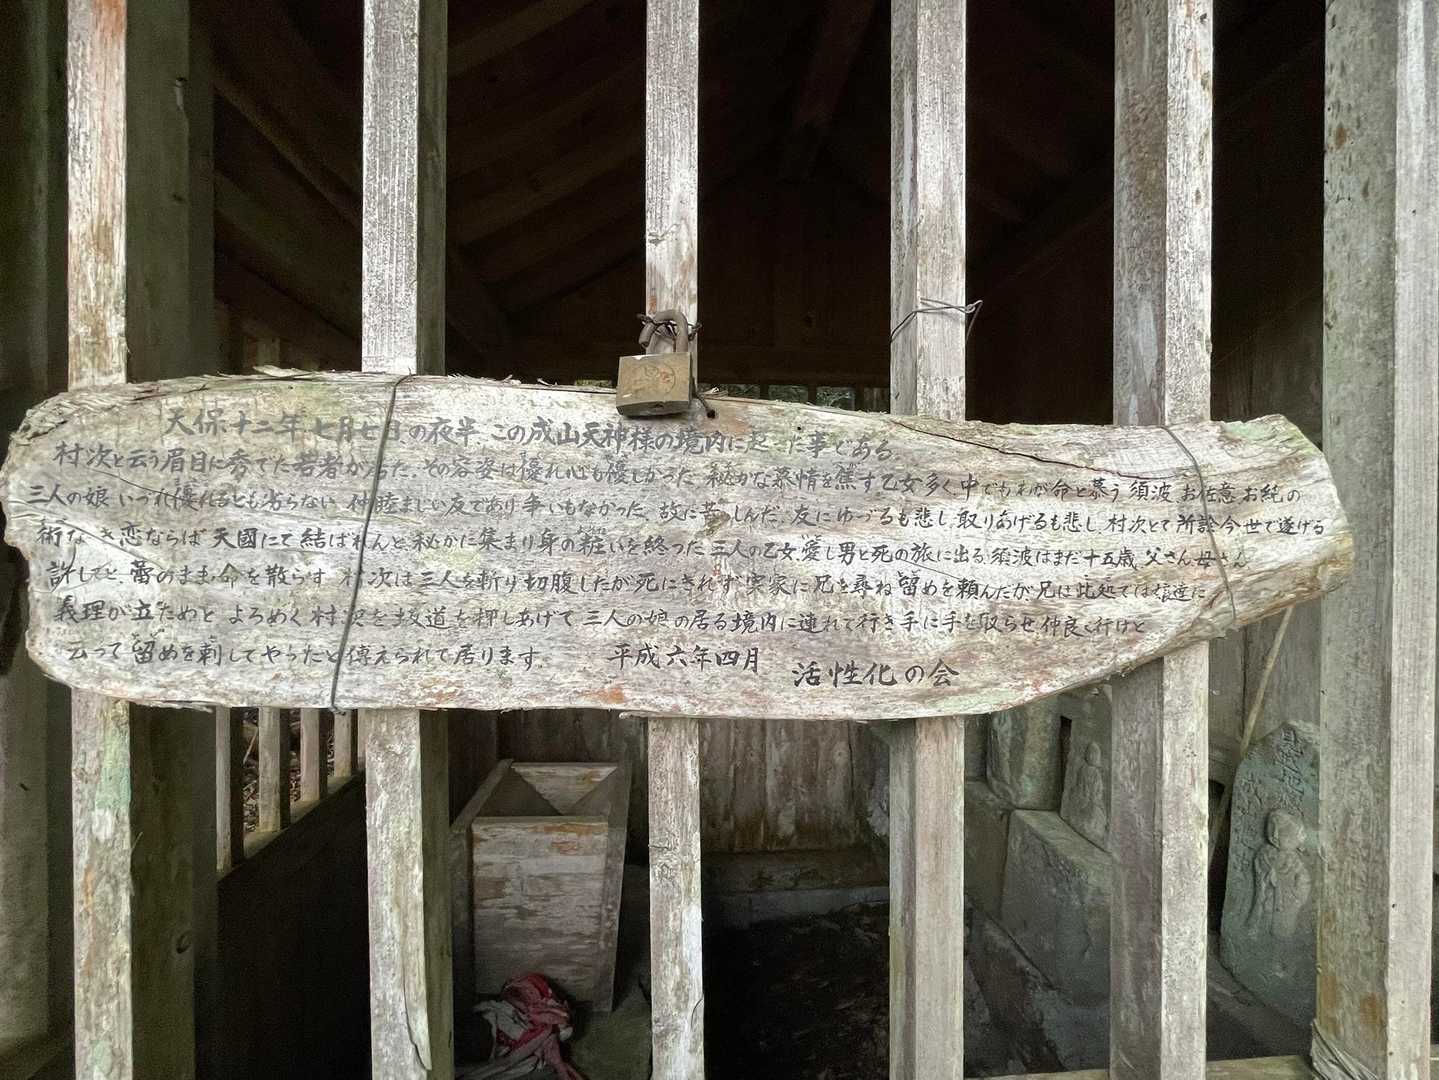 天保十二年七月七日の夜半、この成山天神様の境内に起った事である。
村次と云う眉目に秀でた若者があった、その容姿は優れ心も優しかった、秘かな慕情を焦す乙女多く中でもわが命と慕う須波 お佐意 お純の
三人の娘 いづれ優れるとも劣らない 仲睦まじい友であり争いもなかった、故に苦しんだ、友にゆづるも悲し、取りあげるも悲し、村次とて所詮今世で遂げる
術なき恋ならば 天國にて結ばれんと、秘かに集まり身の粧いを終った三人の乙女、愛し男と死の旅に出る、須波はまだ十五歳 父さん母さん
許してと、蕾のまま命を散らす 村次は三人を斬り切腹したが死にきれず実家に兄を尋ね 留めを頼んだが兄は此処では
義理が立ためと よろめく村次を坂道を押しあげて 三人の娘の居る境内に連れて行き手に手を取らせ 仲良く行けと
云って 留めを刺してやったと傳えられて居ります。 平成六年四月 活性化の会